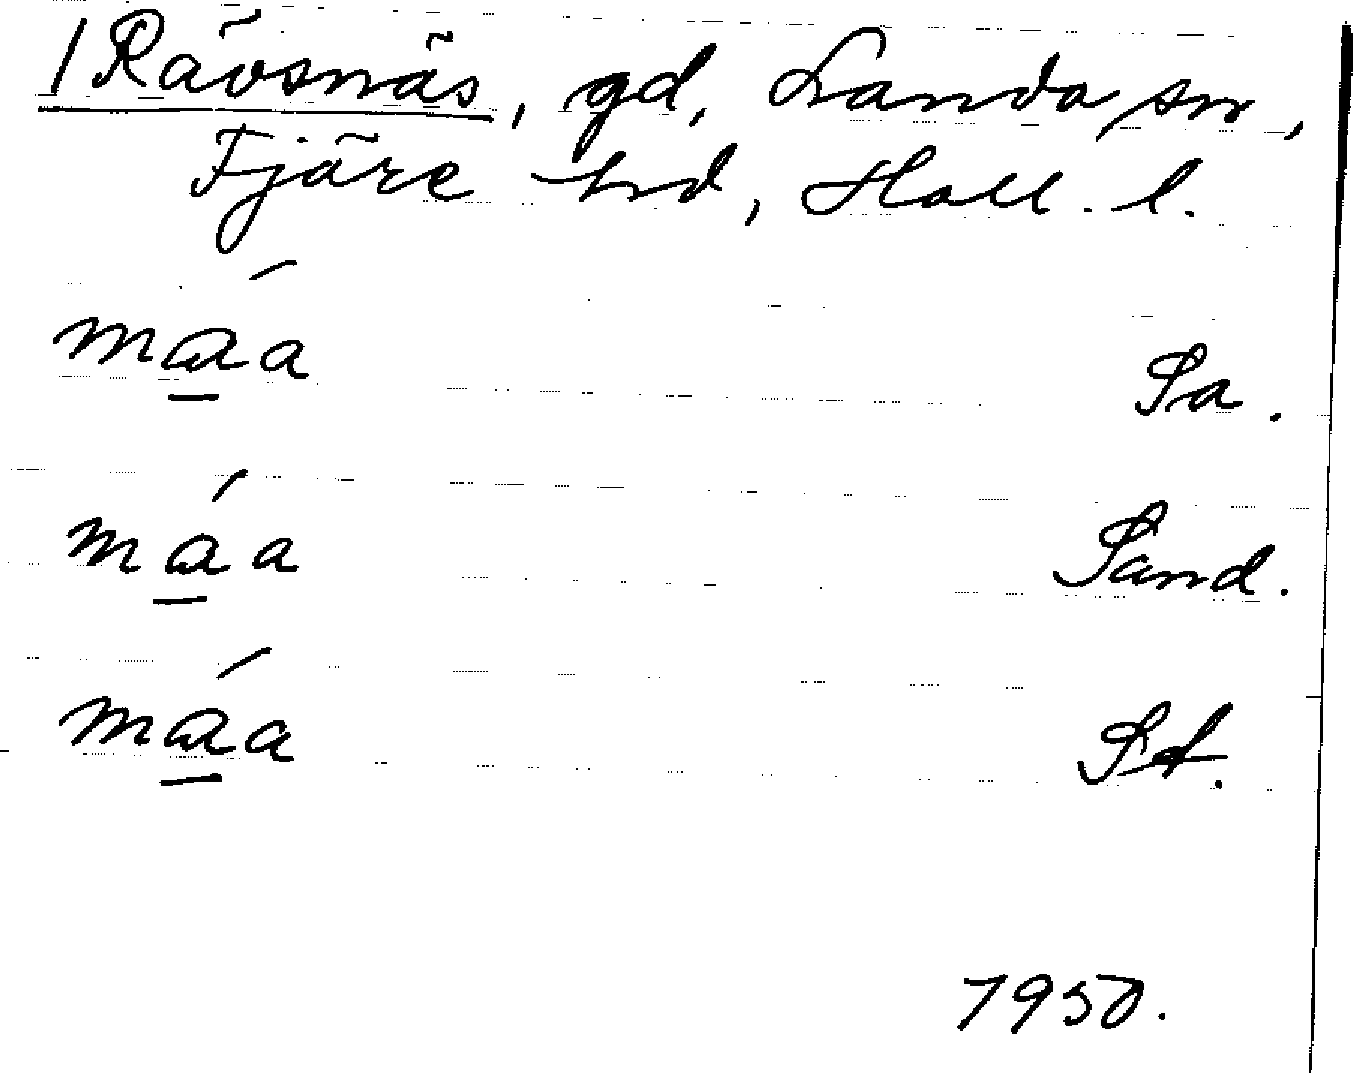 1 Rävsnäs, gd, Landa sn,
Fjäre hd, Hall. l.
ma̲´a Sa.
ma̲´a Sand.
ma̲´a St.
1950.